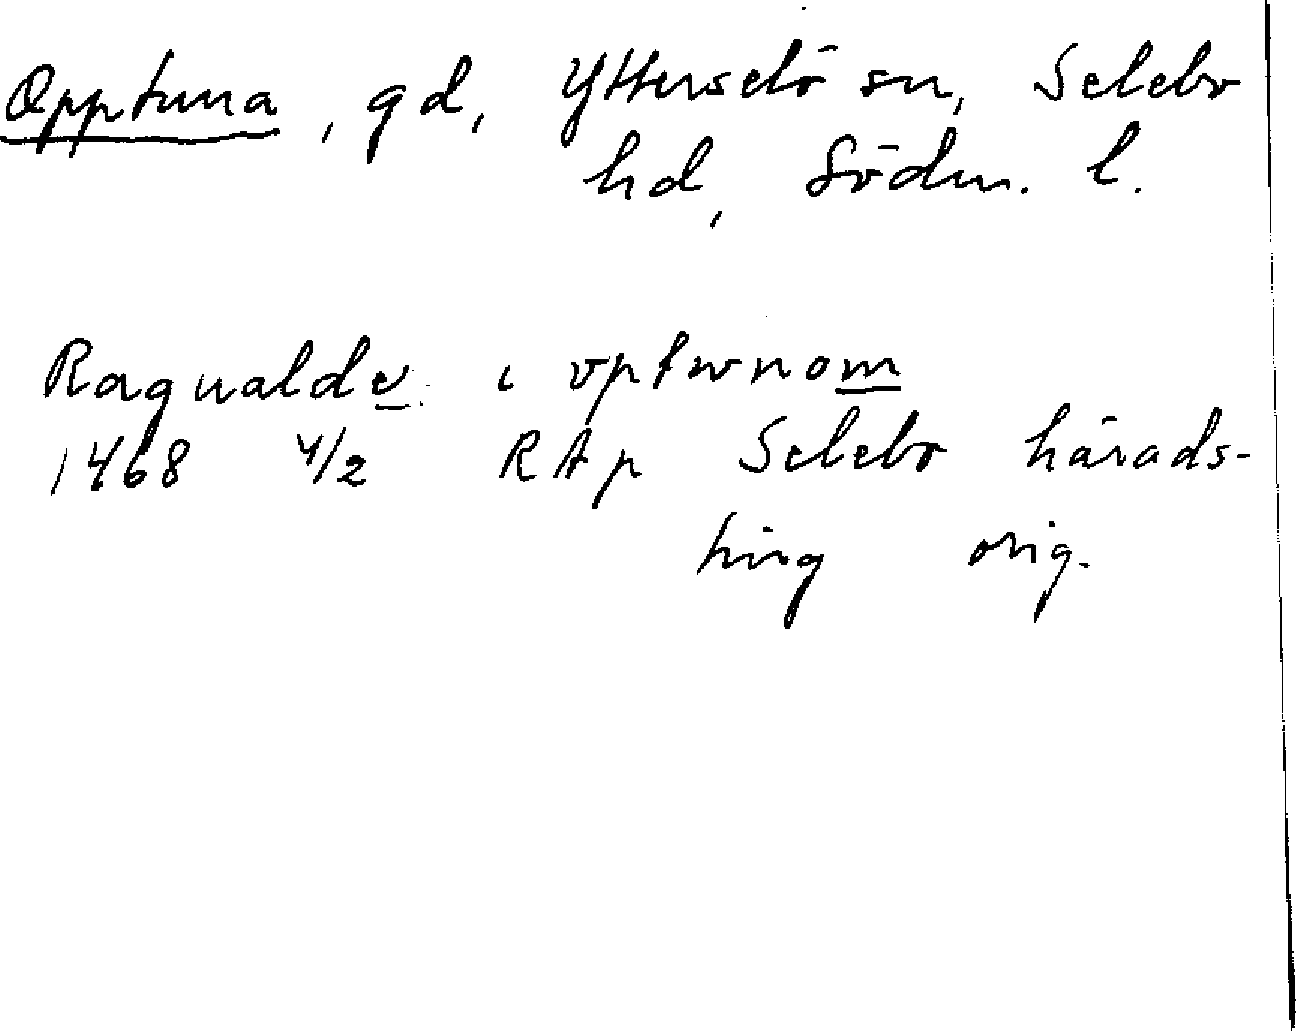 Opptuna, gd, Ytterselö sn, Selebo
hd, Södm. l.
Ragualde i vptwnom
1468 4/2 RAp Selebo härads-
ting orig.